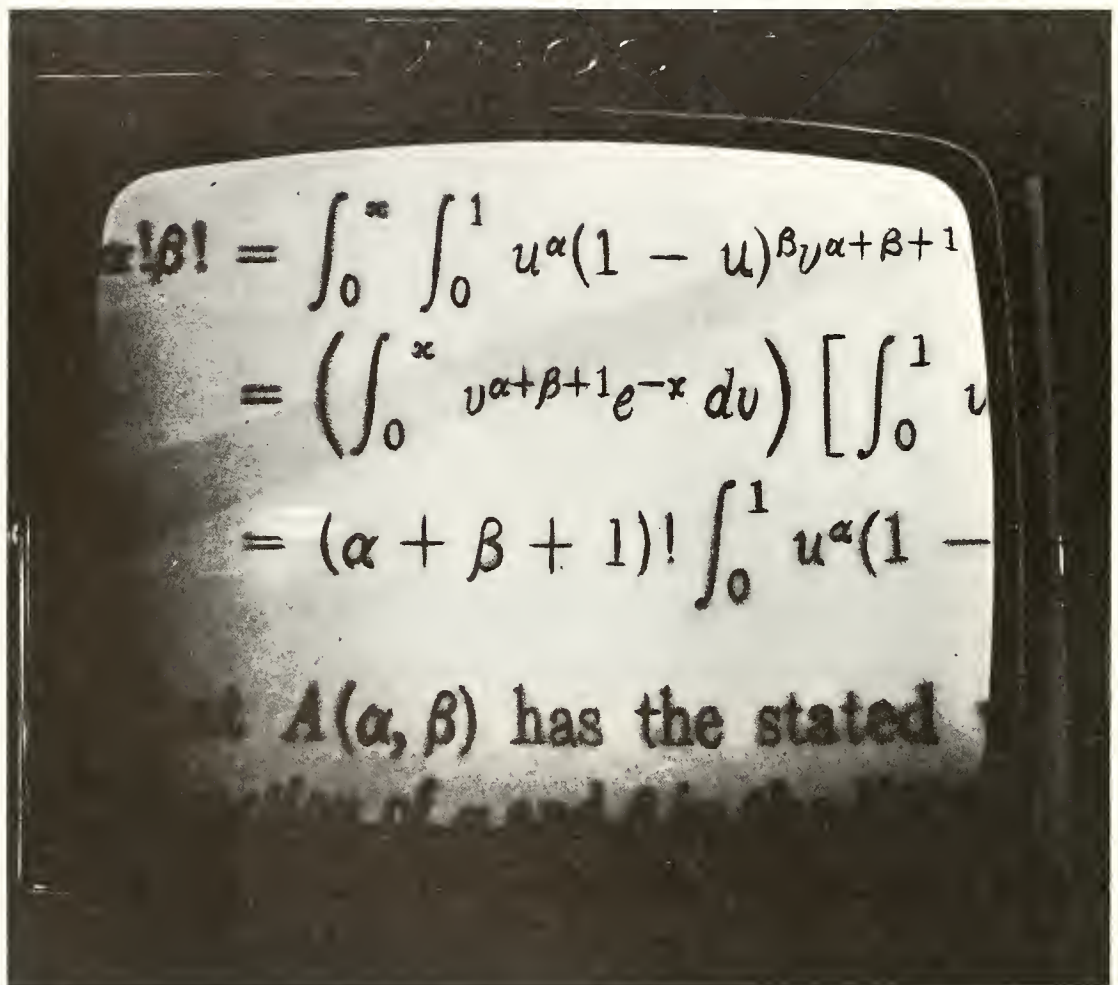 !β! = ∫₀^∞ ∫₀¹ u^α(1 − u)^β v^{α+β+1}
= (∫₀^∞ v^{α+β+1}e^{−x} dv) [∫₀¹
= (α + β + 1)! ∫₀¹ u^α(1 −
A(α, β) has the stated